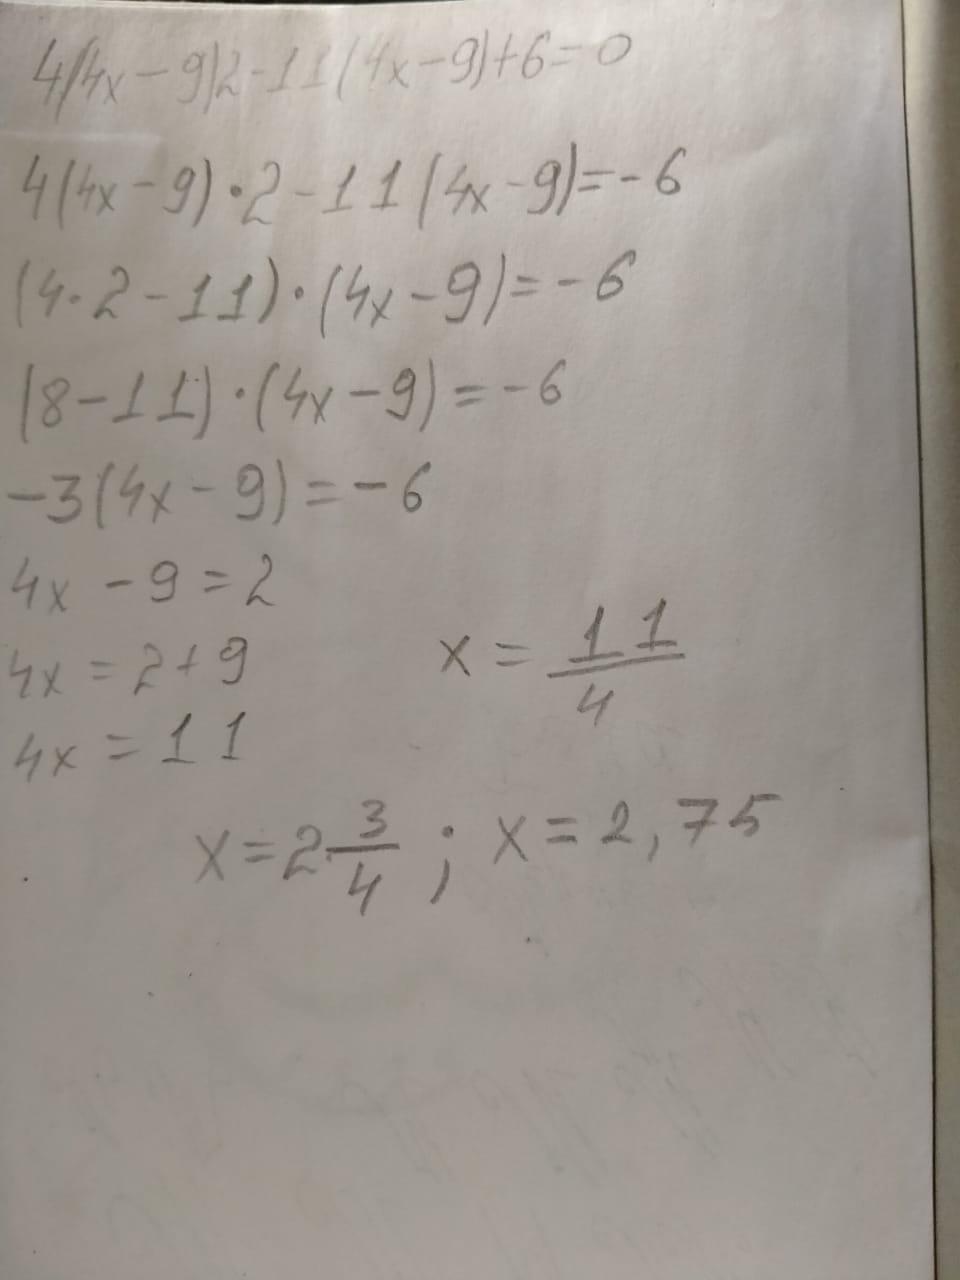 4(4x-9)2-11(4x-9)+6=0
4(4x-9)·2-11(4x-9)=-6
(4·2-11)·(4x-9)=-6
(8-11)·(4x-9)=-6
-3(4x-9)=-6
4x-9=2
4x=2+9
4x=11
x=11/4
x=2 3/4; x=2,75